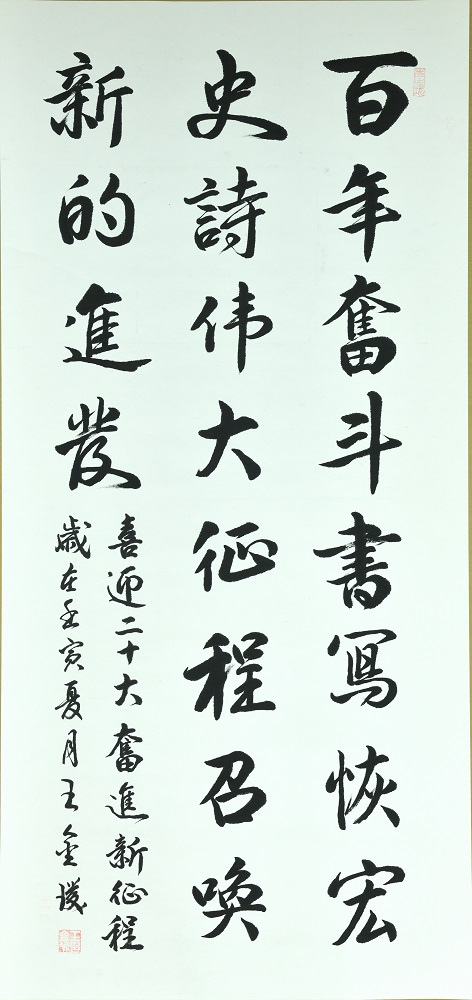 百年奮斗書冩恢宏
史詩伟大征程召喚
新的進發
喜迎二十大奮進新征程
歲在壬寅夏月王金